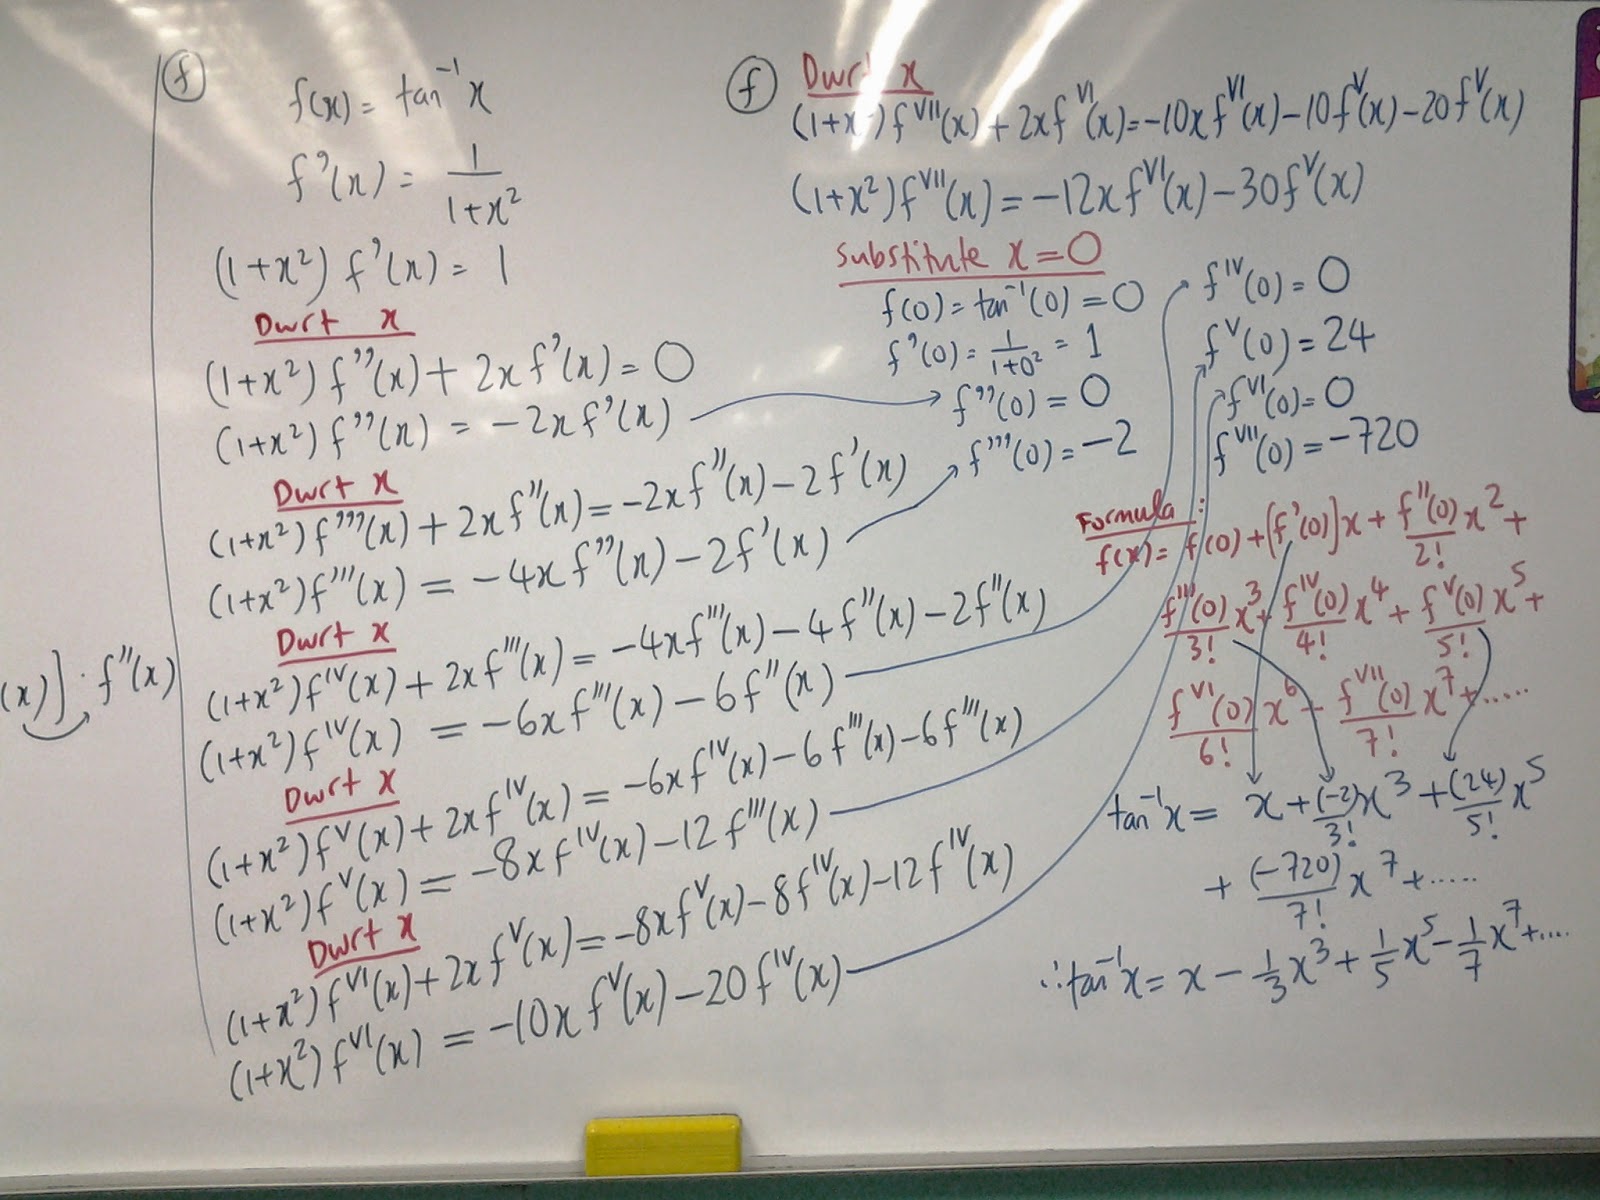 (x)] · f''(x)
(f)
f(x) = tan⁻¹x
f'(x) = 1/(1+x²)
(1+x²) f'(x) = 1
Dwrt x
(1+x²) f''(x) + 2x f'(x) = 0
(1+x²) f''(x) = -2x f'(x)
Dwrt x
(1+x²) f'''(x) + 2x f''(x) = -2x f''(x) - 2 f'(x)
(1+x²) f'''(x) = -4x f''(x) - 2f'(x)
Dwrt x
(1+x²) f^IV(x) + 2x f'''(x) = -4x f'''(x) - 4 f''(x) - 2 f''(x)
(1+x²) f^IV(x) = -6x f'''(x) - 6 f''(x)
Dwrt x
(1+x²) f^V(x) + 2x f^IV(x) = -6x f^IV(x) - 6 f'''(x) - 6 f'''(x)
(1+x²) f^V(x) = -8x f^IV(x) - 12 f'''(x)
Dwrt x
(1+x²) f^VI(x) + 2x f^V(x) = -8x f^V(x) - 8 f^IV(x) - 12 f^IV(x)
(1+x²) f^VI(x) = -10x f^V(x) - 20 f^IV(x)
(f) Dwrt x
(1+x ) f^VII(x) + 2x f^VI(x) = -10x f^VI(x) - 10 f^V(x) - 20 f^V(x)
(1+x²) f^VII(x) = -12x f^VI(x) - 30 f^V(x)
Substitute x = 0
f(0) = tan⁻¹(0) = 0
f'(0) = 1/(1+0²) = 1
f''(0) = 0
f'''(0) = -2
f^IV(0) = 0
f^V(0) = 24
f^VI(0) = 0
f^VII(0) = -720
Formula :
f(x) = f(0) + [f'(0)]x + f''(0)/2! x² +
f'''(0)/3! x³ + f^IV(0)/4! x⁴ + f^V(0)/5! x⁵ +
f^VI(0)/6! x⁶ - f^VII(0)/7! x⁷ + .....
tan⁻¹x = x + (-2)/3! x³ + (24)/5! x⁵
+ (-720)/7! x⁷ + .....
∴ tan⁻¹x = x - 1/3 x³ + 1/5 x⁵ - 1/7 x⁷ + ....